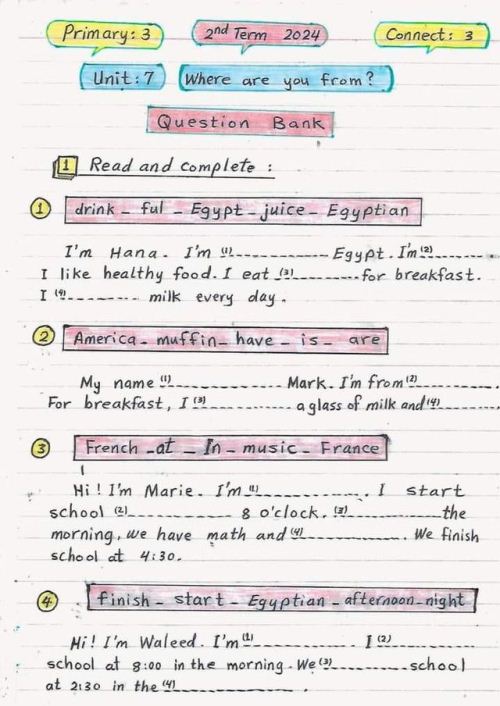 Primary: 3 2nd Term 2024 Connect: 3
Unit: 7 Where are you from?
Question Bank
1 Read and complete :
1 drink - ful - Egypt - juice - Egyptian
I'm Hana. I'm (1)............... Egypt. I'm (2)...........
I like healthy food. I eat (3)...........for breakfast.
I (4)........... milk every day.
2 America - muffin - have - is - are
My name (1)............... Mark. I'm from (2)...........
For breakfast, I (3)............... a glass of milk and (4)...........
3 French - at - In - music - France
Hi! I'm Marie. I'm (1)............... . I start
school (2)............... 8 o'clock. (3)...............the
morning, we have math and (4)............... . We finish
school at 4:30.
4 finish - start - Egyptian - afternoon - night
Hi! I'm Waleed. I'm (1)............... . I (2)...........
school at 8:00 in the morning. We (3)...........school
at 2:30 in the (4)............... .